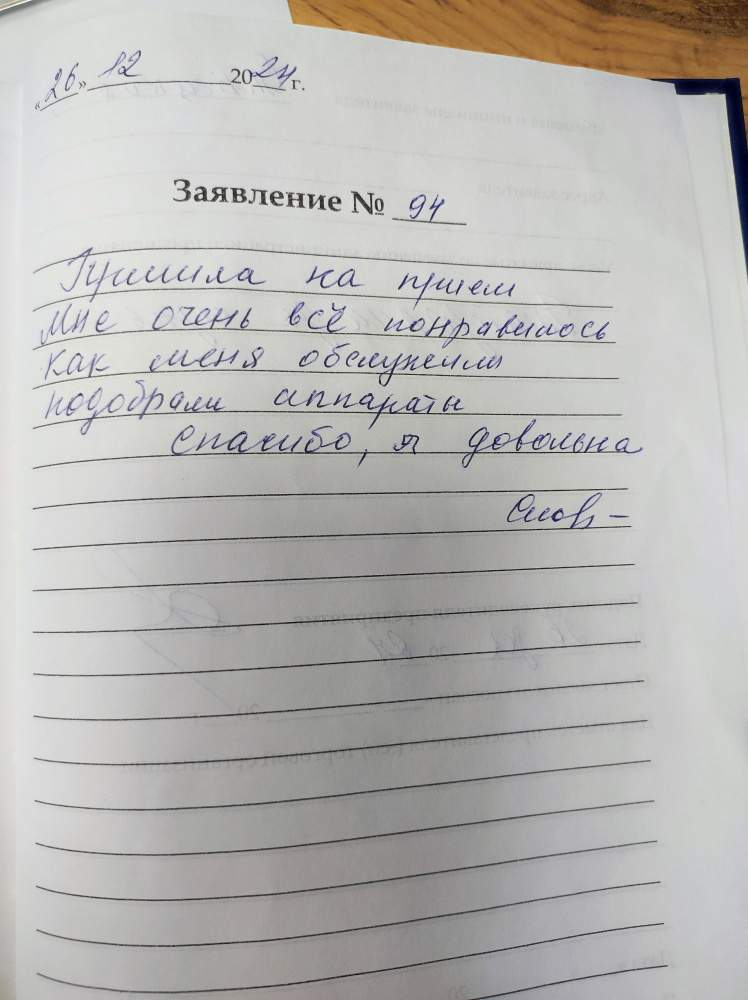 «26» 12 2024 г.
Заявление № 94
Пришла на прием
Мне очень всё понравилось
как меня обслужили
подобрали аппараты
Спасибо, я довольна